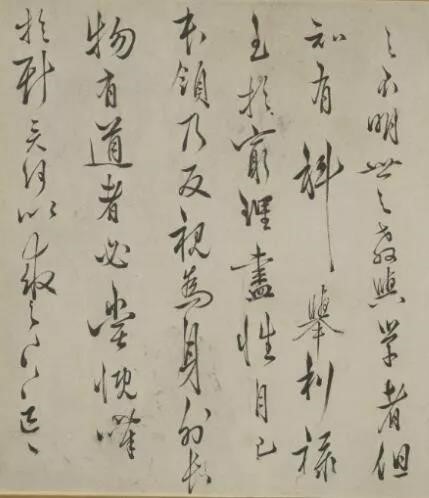 之不明世之教與学者但
知有科舉利祿
至於窮理盡性自己
本領乃反視為身外長
物有道者必嘗慨嘆
於斯矣何以救之